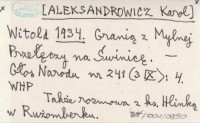 [ALEKSANDROWICZ Karol]
Witold 1934. Granią z Mylnej
Przełęczy na Świnicę. —
Głos Narodu nr 241 (3 IX): 4.
WHP
Także rozmowa z ks. Hlinką
w Rużomberku.